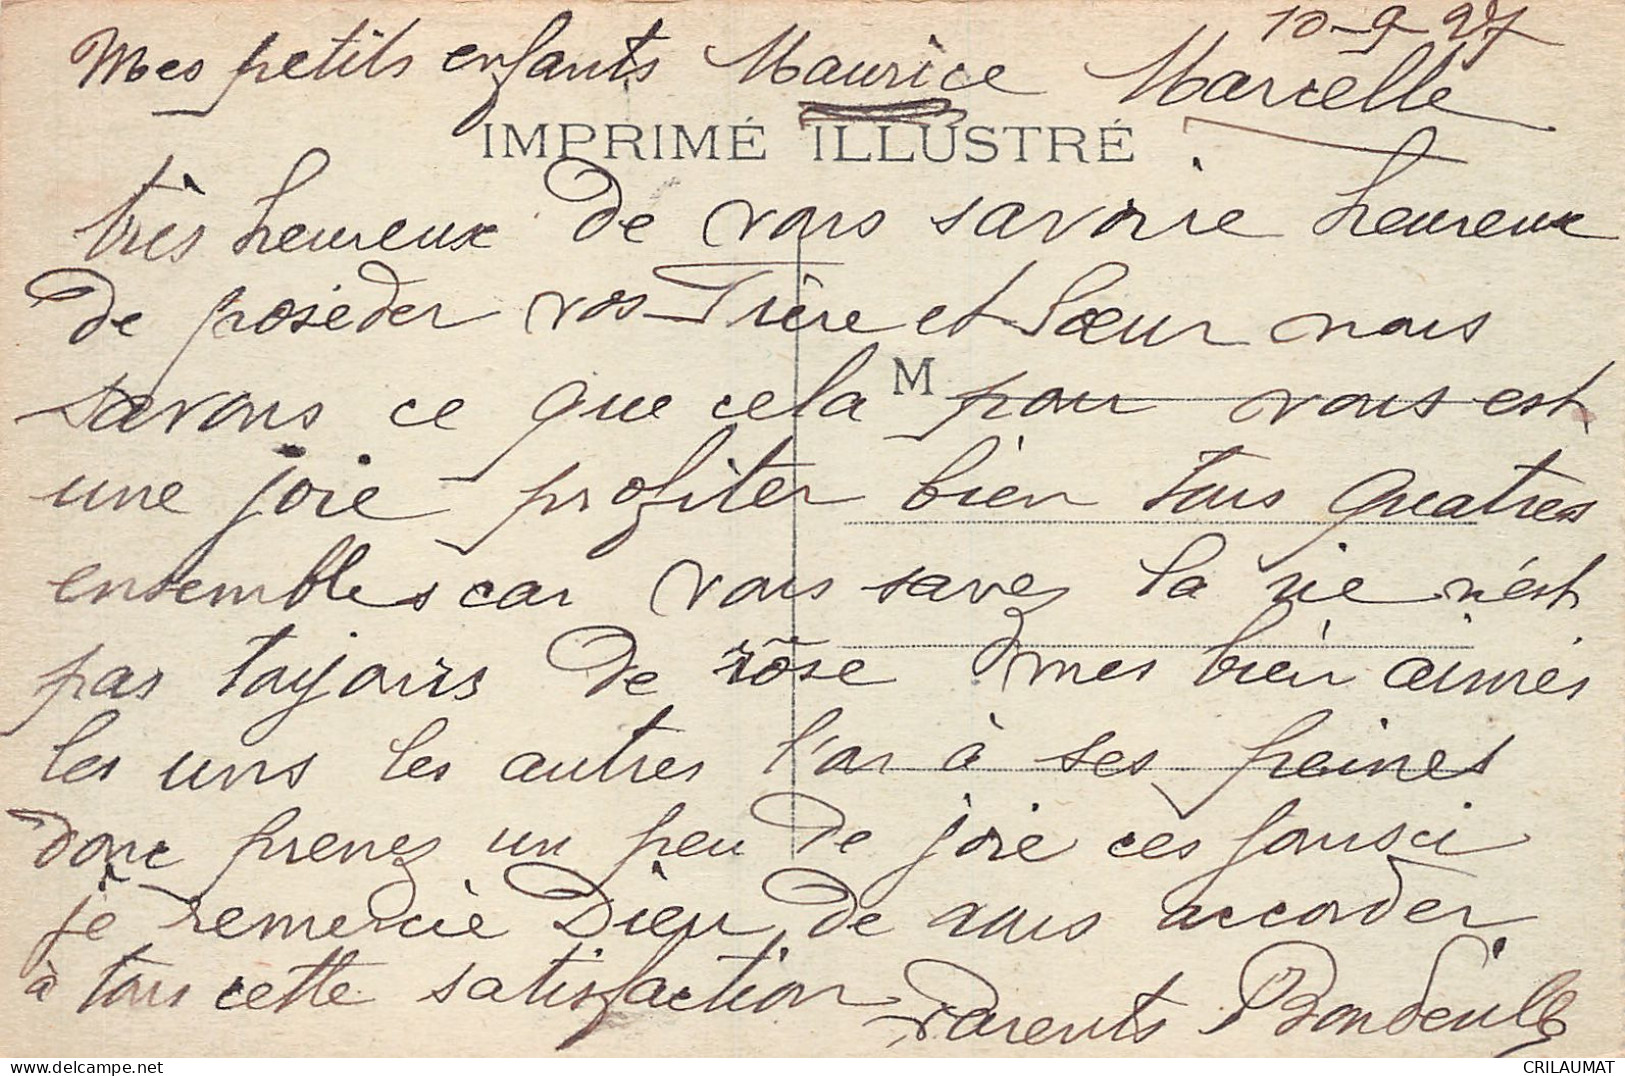 10-9-27
Mes petits enfants Maurice Marcelle
IMPRIMÉ ILLUSTRÉ
très heureux de vous savoire heureux
de poséder vos Frère et Sœur nous
savons ce que cela pour vous est
M
une joie profiter bien tous quatres
ensembles car vous savez la vie n'est
pas toujours de rose mes bien aimés
les uns les autres l'on à ses peines
donc prenez un peu de joie ces jousci
je remercie Dieu de nous accorder
à tous cette satisfaction Parents
delcampe.net
CRILAUMAT